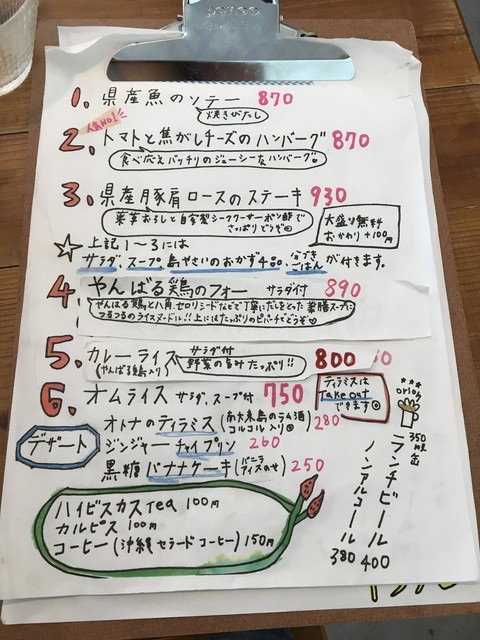 1. 県産魚のソテー 870
焼きびたし
人気No1
2. トマトと焦がしチーズのハンバーグ 870
食べ応えバッチリのジューシーなハンバーグ。
3. 県産豚肩ロースのステーキ 930
薬草おろしと自家製シークヮーサーポン酢で
さっぱりどうぞ
大盛り無料
おかわり+100円
☆ 上記1〜3には
サラダ、スープ、島やさいのおかず4品、ごはんが付きます。
4. やんばる鶏のフォー サラダ付 890
やんばる鶏と八角、セロリシードなどで丁寧にだしをとった薬膳スープに
つるつるのライスヌードル!!上にはたっぷりのピパーチでどうぞ
5. カレーライス サラダ付 800
(やんばる鶏入り) 野菜の旨みたっぷり!!
6. オムライス サラダ、スープ付 750
ティラミスは
Take out
できます
デザート
オトナのティラミス (南大東島のラム酒
コルコル入り) 280
ジンジャーチャイプリン 260
黒糖バナナケーキ (バニラ
アイスのせ) 250
orion
350ml缶
ランチビール 400
ノンアルコール 380
ハイビスカスTea 100円
カルピス 100円
コーヒー (沖縄セラードコーヒー) 150円